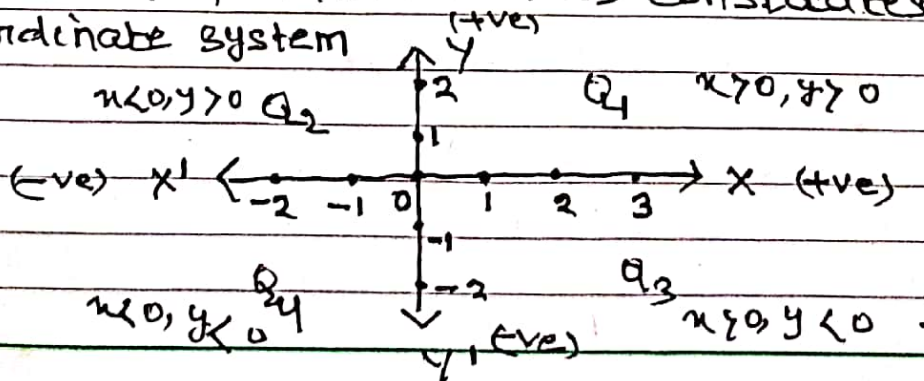 rdinate system
(+ve)
Y
x<0, y>0 Q2 2 Q1 x>0, y>0
1
(-ve) X' -2 -1 0 1 2 3 X (+ve)
-1
Q4 -2 Q3
x<0, y<0 x>0, y<0
Y' (-ve)